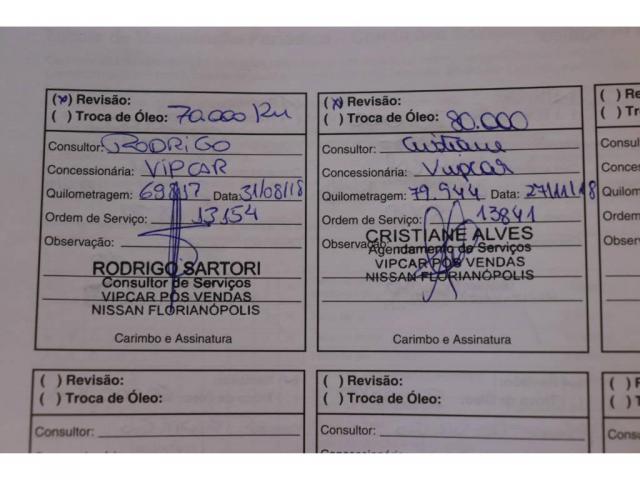 (x) Revisão:
( ) Troca de Óleo: 70.000 Km
Consultor: RODRIGO
Concessionária: VIPCAR
Quilometragem: 69817 Data: 31/08/18
Ordem de Serviço: 13154
Observação:
RODRIGO SARTORI
Consultor de Serviços
VIPCAR PÓS VENDAS
NISSAN FLORIANÓPOLIS
Carimbo e Assinatura
(x) Revisão:
( ) Troca de Óleo: 80.000
Consultor: Cristiane
Concessionária: Vipcar
Quilometragem: 79.944 Data: 27/11/18
Ordem de Serviço: 13841
Observação:
CRISTIANE ALVES
Agendamento de Serviços
VIPCAR PÓS VENDAS
NISSAN FLORIANÓPOLIS
Carimbo e Assinatura
( ) Re
( ) Tr
Consu
Conce
Quilom
Ordem
Obser
( ) Revisão:
( ) Troca de Óleo:
Consultor:
( ) Revisão:
( ) Troca de Óleo:
Consultor:
( ) R
( ) T
Cons